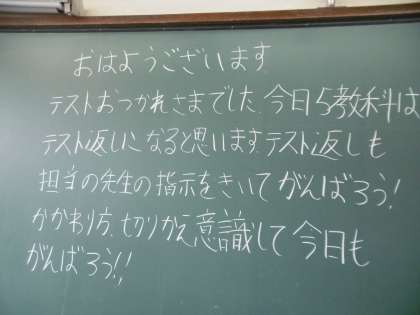 おはようございます
テストおつかれさまでした。今日5教科は
テスト返しになると思います。テスト返しも
担当の先生の指示をきいてがんばろう!
かかわり方、切りかえ意識して今日も
がんばろう!!